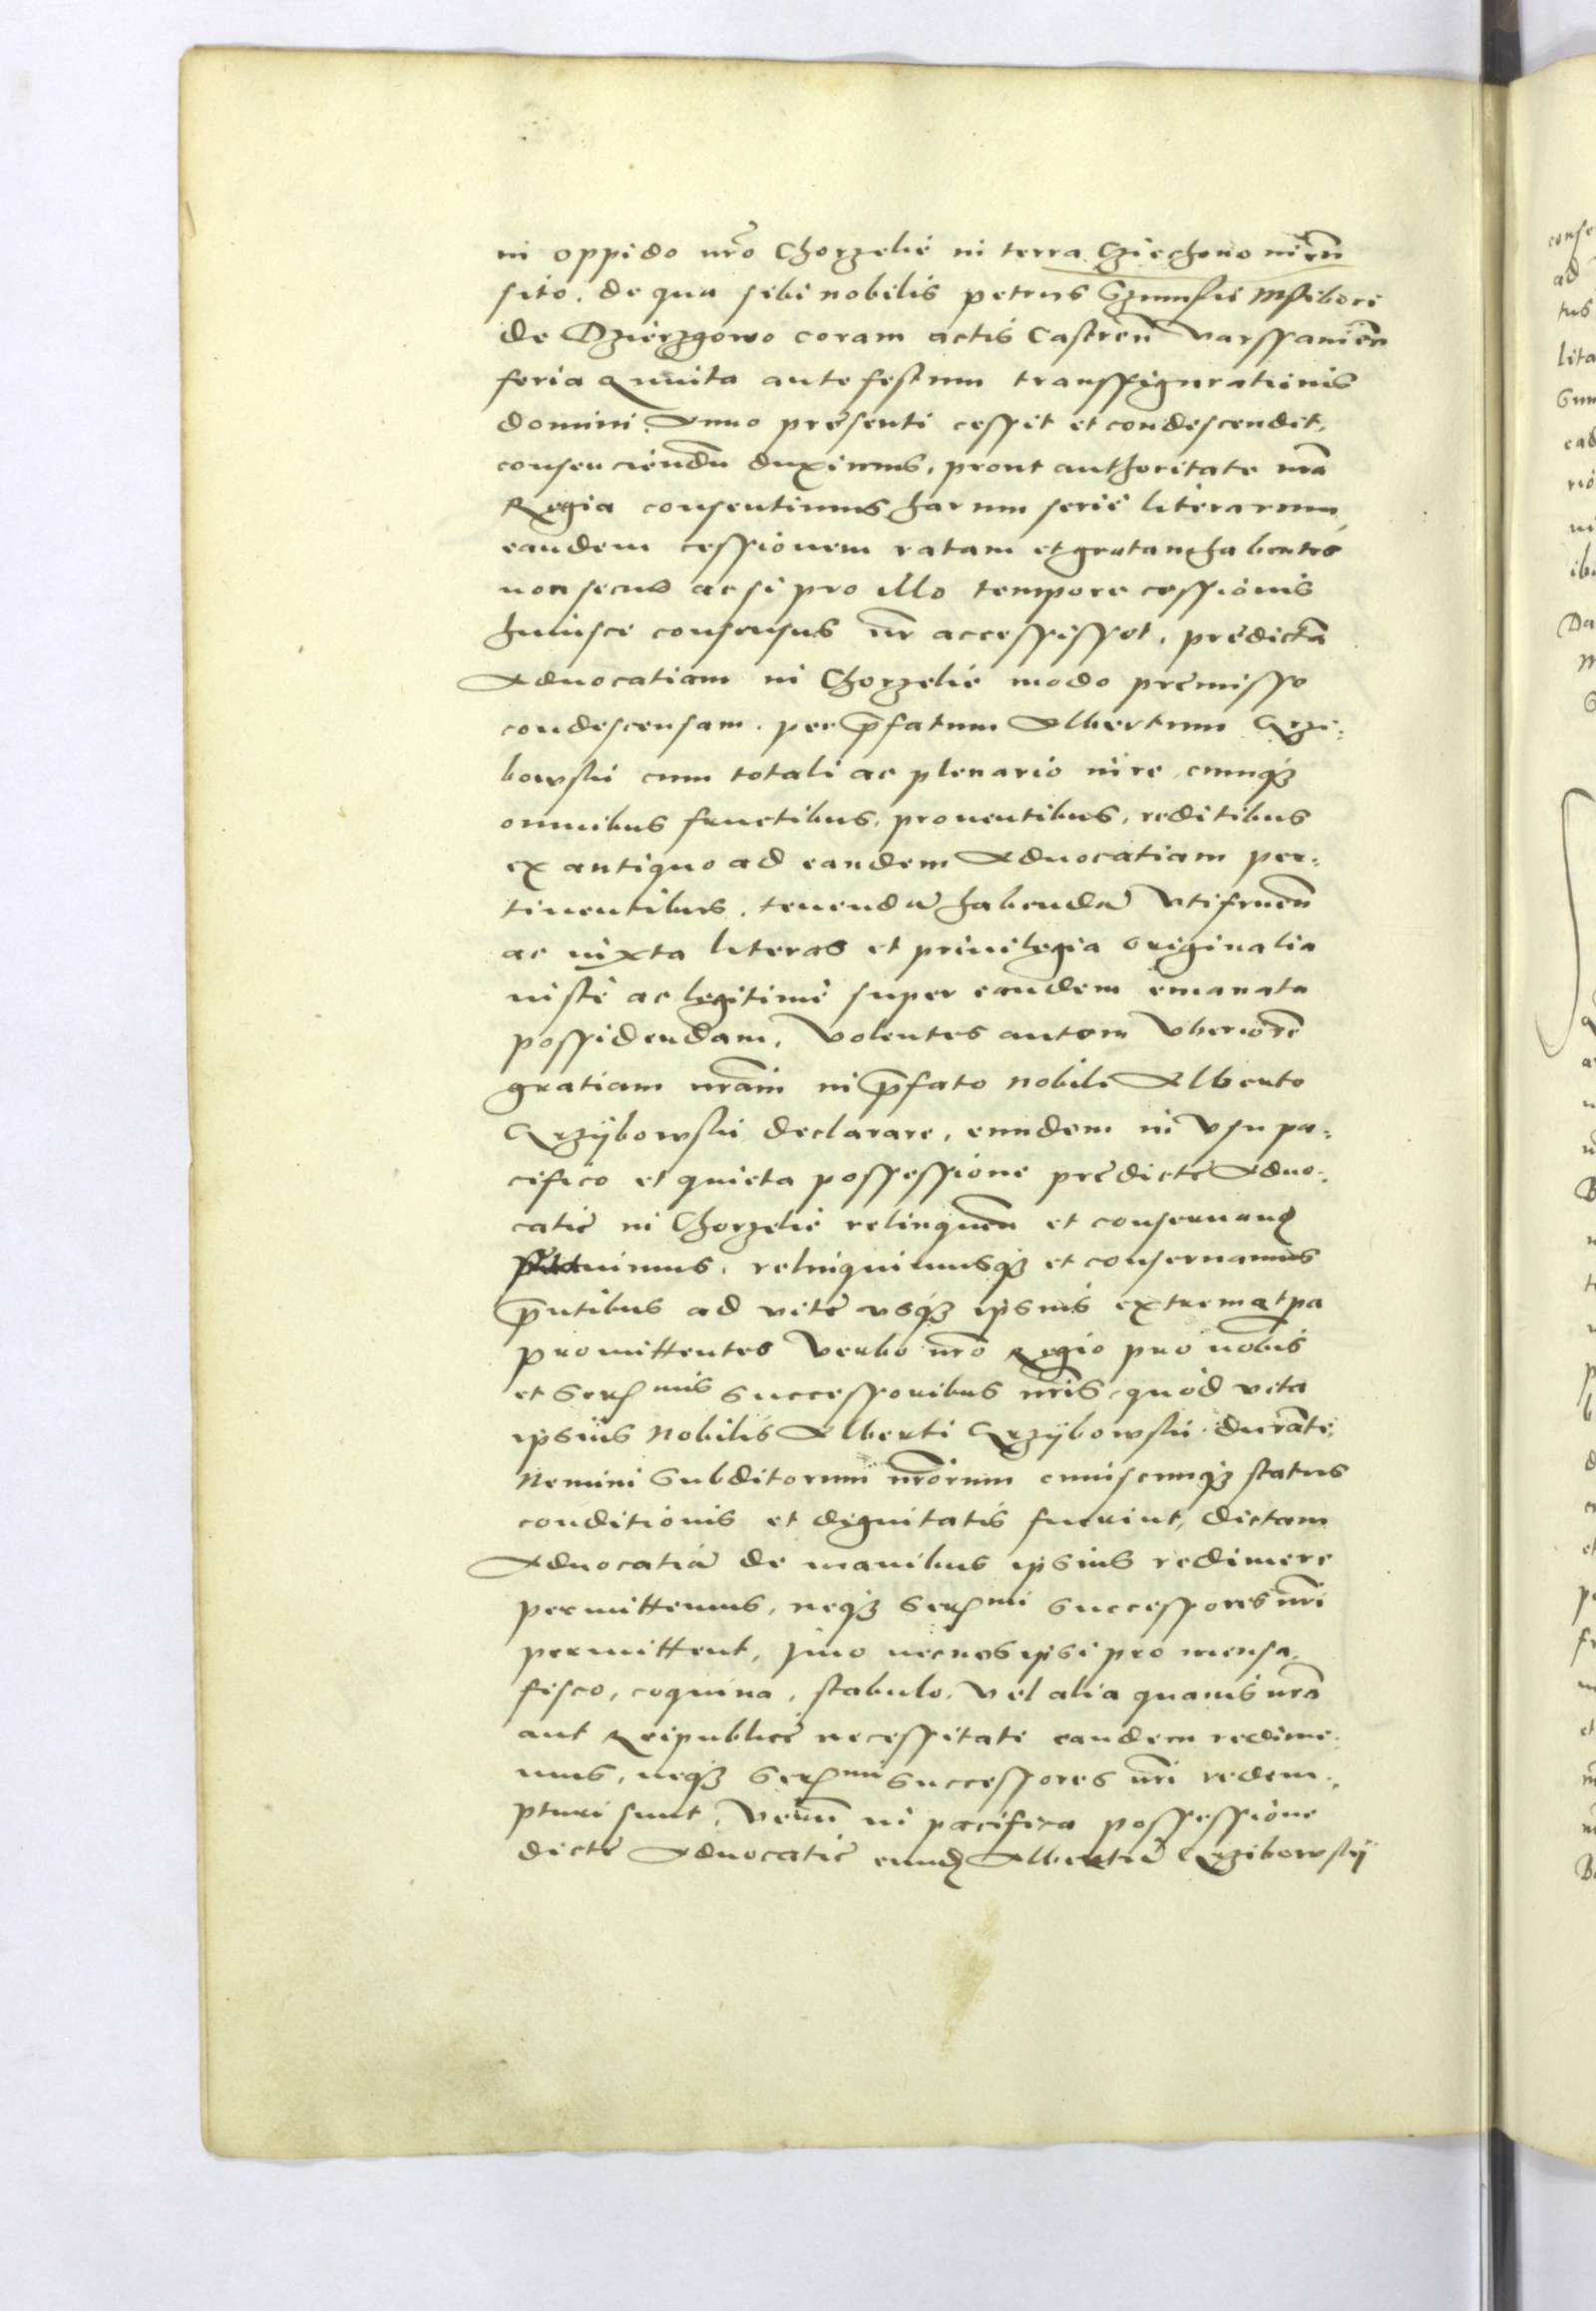 in oppido nr̃o Chorzelie in terra Cziechonowieñ
sito, de qua sibi nobilis petrus Mscibori
de Dzierzgowo coram actis Castreñ Varssavieñ
feria Quinta ante festum transsfigurationis
domini, Anno presenti cessit et condescendit,
consenciendũ duximus, prout authoritate nr̃a
Regia consentimus harum serie literarum,
eandem cessionem ratam et gratam habentes
non secus ac si pro illo tempore cessionis
huiusce consensus nr̃ accessisset, predictã
Advocatiam in Chorzelie modo premisso
condescensam, per p̃fatum Albertum Grzi:
bowski cum totali ac plenario iure, cumq3
omnibus fructibus, proventibus, reditibus
ex antiquo ad eandem Advocatiam per:
tinentibus, tenendã habendã vtifrueñ
ac iuxta literas et privilegia originalia
iuste ac legitime super eandem emanata
possidendam, Volentes autem vberiorẽ
gratiam nr̃am in p̃fato nobili Alberto
Grzÿbowski declarare, eundem in vsu pa:
cifico et quieta possessione predicte Advo:
catie in Chorzelie relinqueñ et conservanđ
duximus, relinquimusq3 et conservamus
p̃ntibus ad vite vsq3 ipsius extrema tp̃a
promittentes verbo nr̃o Regio pro nobis
et Serenmis successoribus nr̃is, quod vita
ipsius Nobilis Alberti Grzÿbowski durãte,
Nemini Subditorum nr̃orum cuiuscunq3 status
conditionis et dignitatis fuerint, dictam
Advocatiã de manibus ipsius redimere
permittemus, neq3 Serenmi successores nr̃i
permittent, Imo nec nos ipsi pro mensa,
fisco, coquina, stabulo, vel alia quavis nr̃a
aut Reipublice necessitate eandem redime:
mus, neq3 Serenmi successores nr̃i redem:
pturi sunt, Verũ in pacifica possessione
dicte Advocatie eundẽ Albertũ Grzibowskÿ